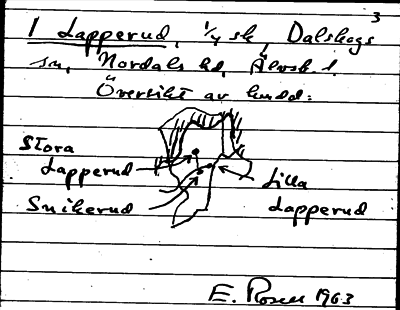 3
1 Lapperud, 1/4 sk, Dalskogs
sn, Nordals hd, Älvsb. l.
Översikt av hudd:
Stora
Lapperud
Snikerud
Lilla
Lapperud
E. Rosell 1963